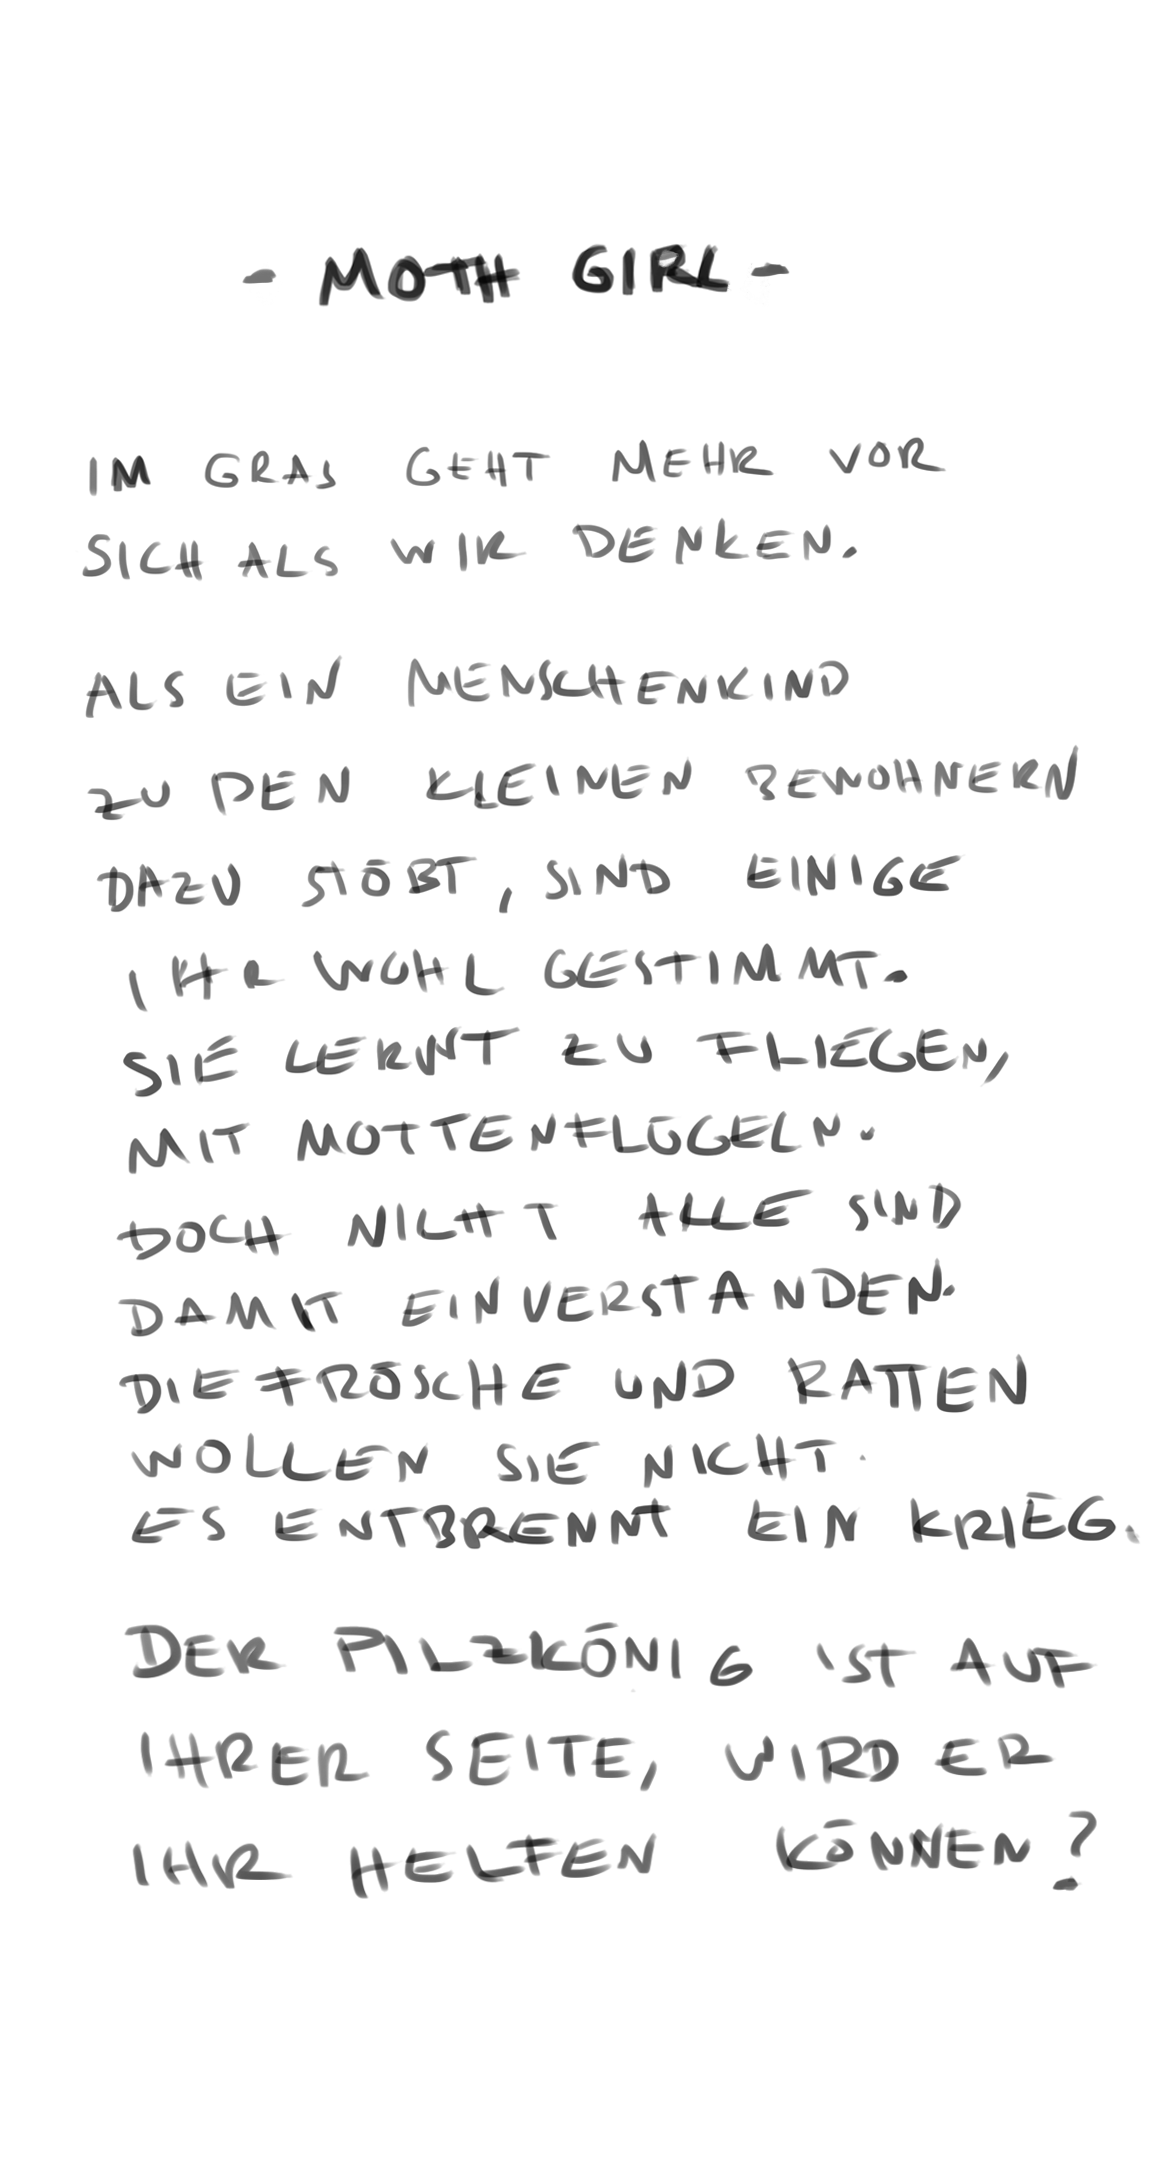 - MOTH GIRL -
IM GRAS GEHT MEHR VOR
SICH ALS WIR DENKEN.
ALS EIN MENSCHENKIND
ZU DEN KLEINEN BEWOHNERN
DAZU STÖßT, SIND EINIGE
IHR WOHL GESTIMMT.
SIE LERNT ZU FLIEGEN,
MIT MOTTENFLÜGELN.
DOCH NICHT ALLE SIND
DAMIT EINVERSTANDEN.
DIE FRÖSCHE UND RATTEN
WOLLEN SIE NICHT.
ES ENTBRENNT EIN KRIEG.
DER PILZKÖNIG IST AUF
IHRER SEITE, WIRD ER
IHR HELFEN KÖNNEN?